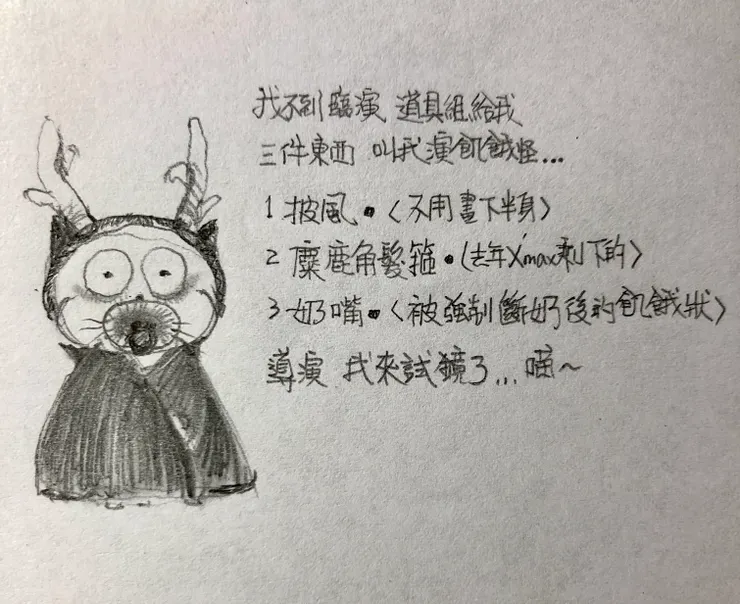 找不到臨演 道具組給我
三件東西 叫我演飢餓怪...
1 披風•〈不用畫下半身〉
2 麋鹿角髮箍•(去年X'max剩下的〉
3 奶嘴•〈被強制斷奶後的飢餓狀〉
導演 我來試鏡了...喵~